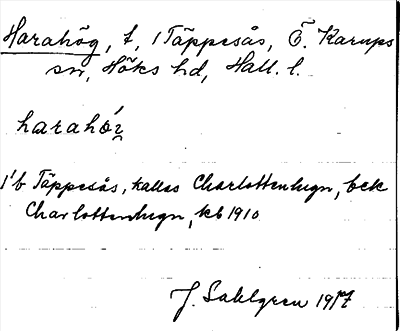 Harahög, t, i Täppesås, Ö. Karups
sn, Höks hd, Hall. l.
harahǿʒ
1'b Täppesås, kallas Charlottenhegn, bek
Charlottenhegn, kb 1910
J. Sahlgren 1917